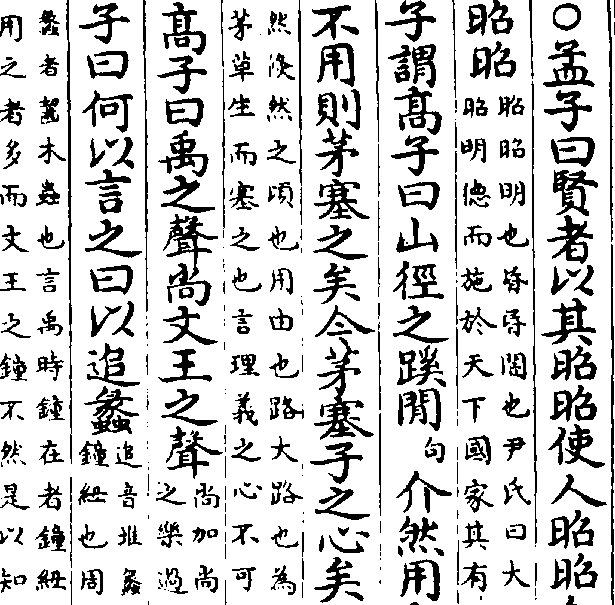 ○孟子曰賢者以其昭昭使人昭昭
昭昭
昭昭明也昏昏闇也尹氏曰大
昭明德而施於天下國家其有
子謂高子曰山徑之蹊閒
句
介然用
不用則茅塞之矣今茅塞子之心矣
然倏然之頃也用由也路大路也為
茅草生而塞之也言理義之心不可
高子曰禹之聲尚文王之聲
尚加尚
之樂過
子曰何以言之曰以追蠡
追音堆蠡
鐘紐也周
蠡者齧木蟲也言禹時鐘在者鐘紐
用之者多而文王之鐘不然是以知